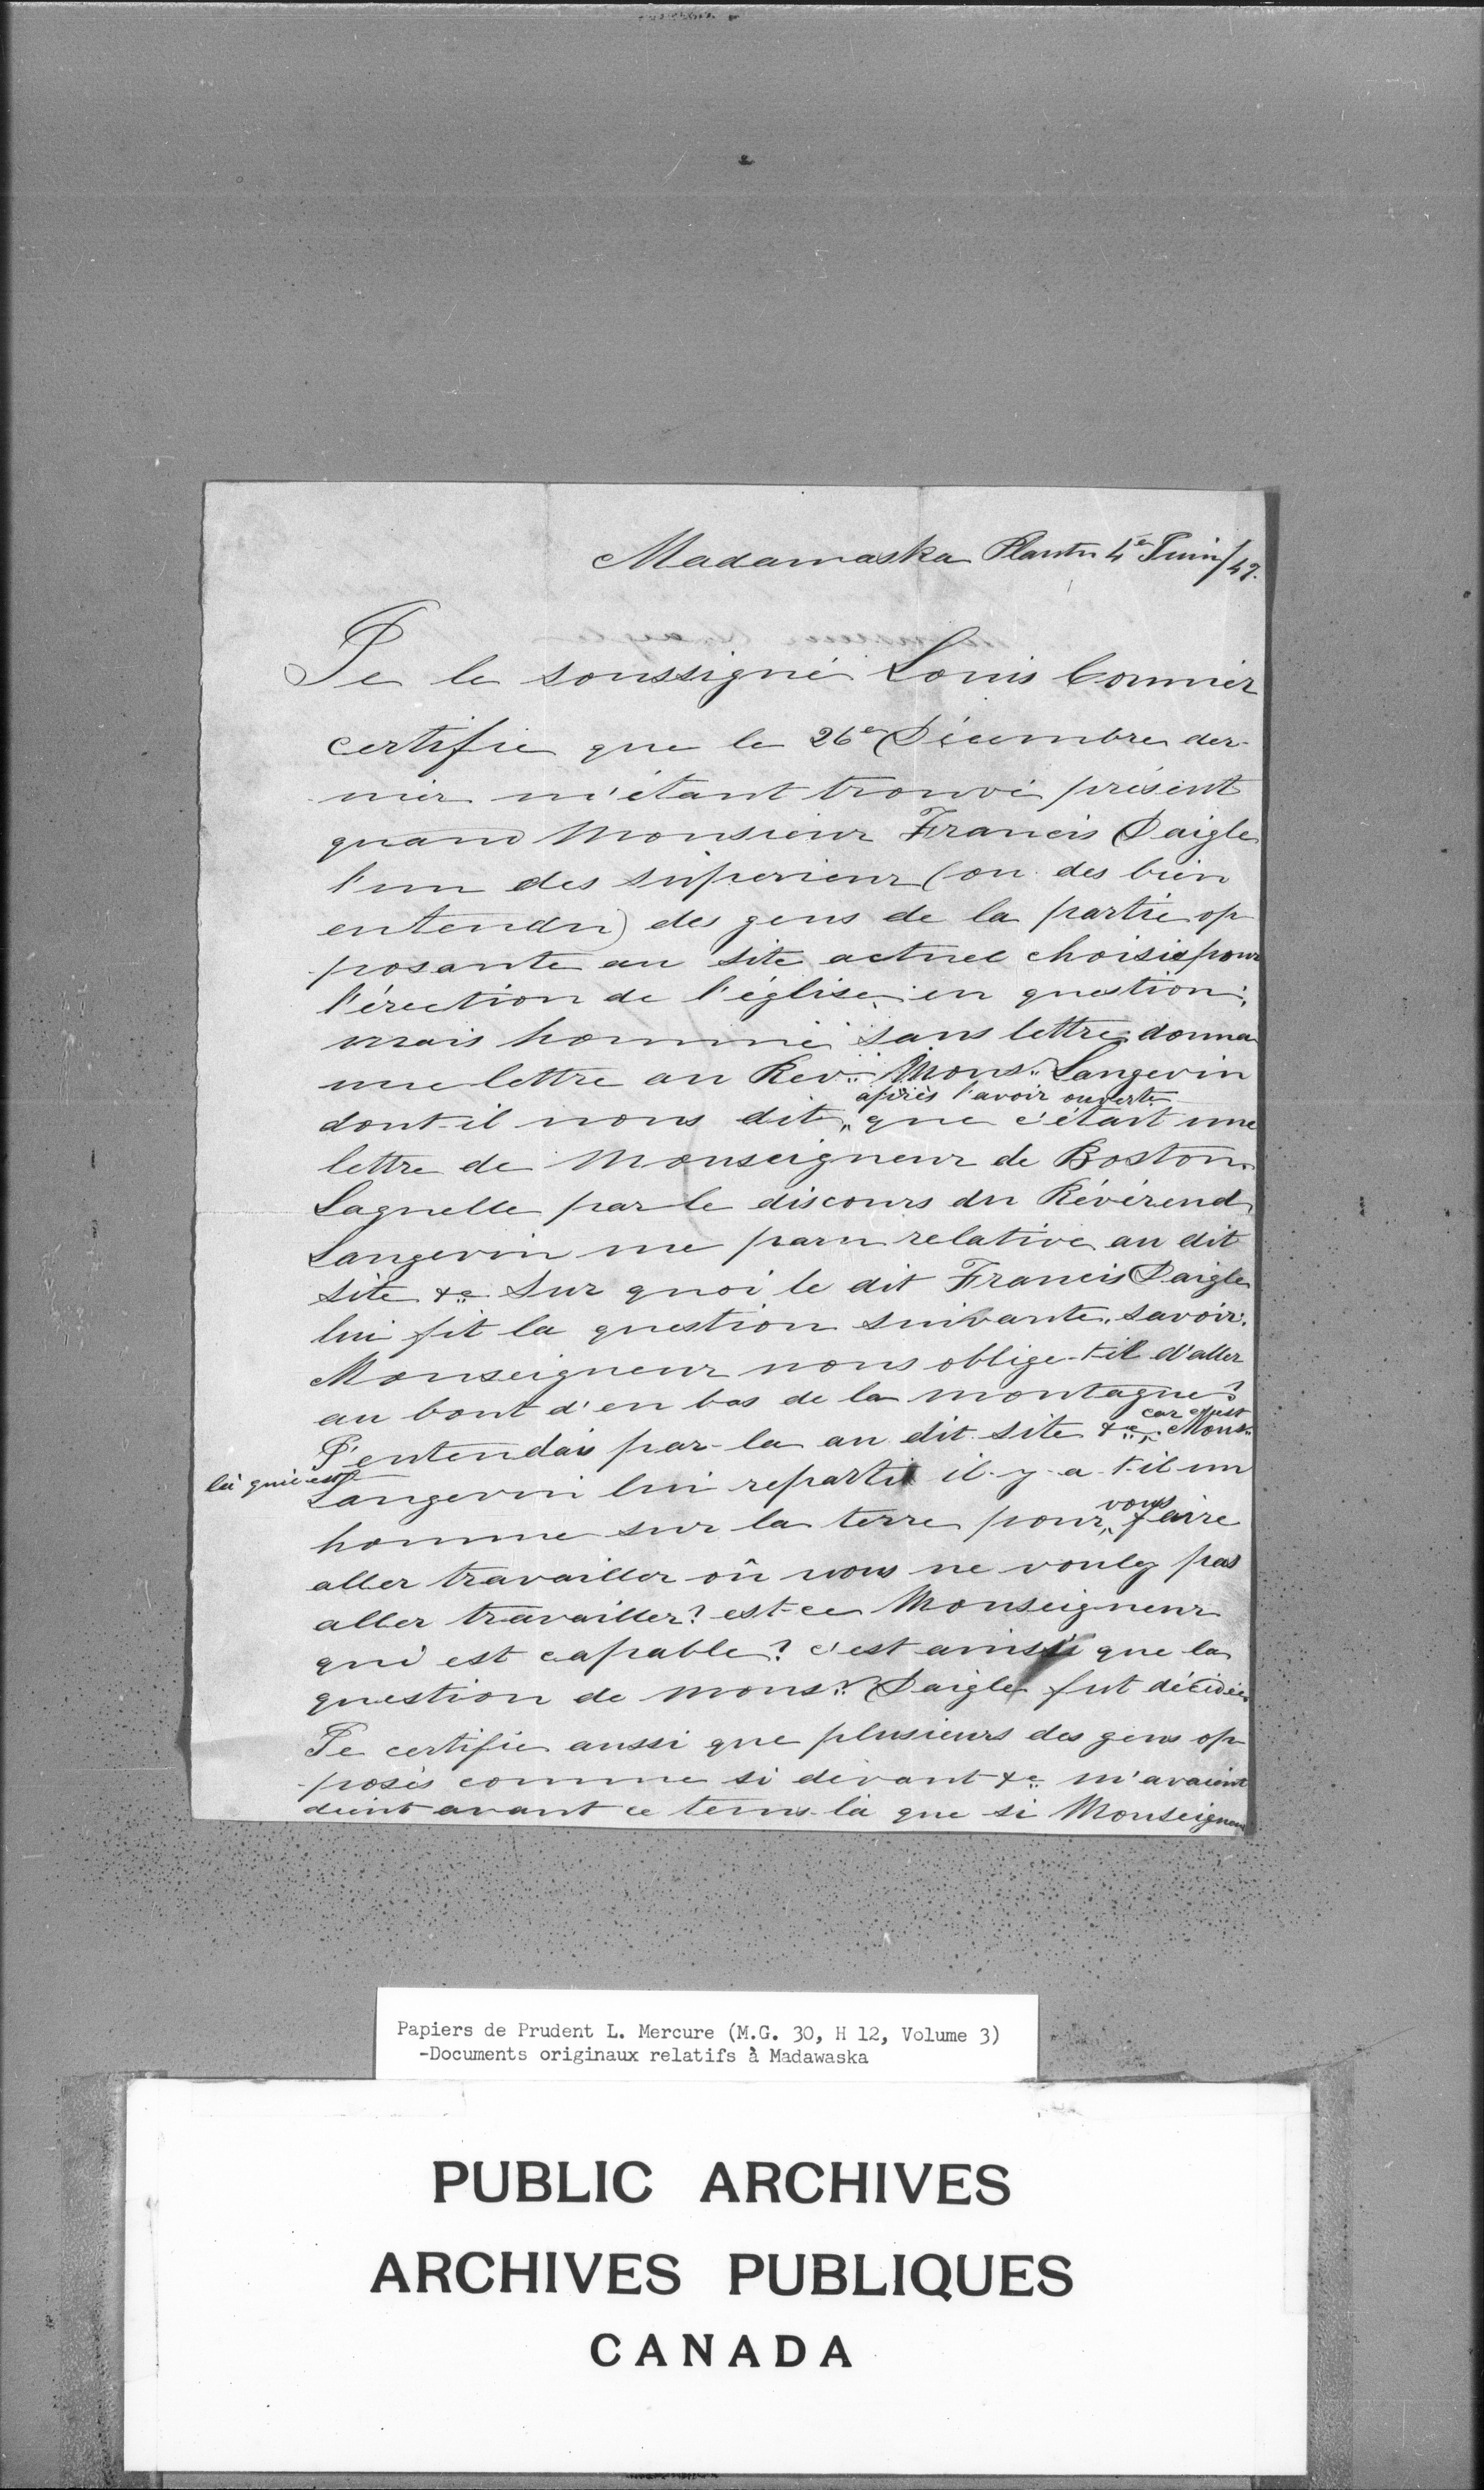 Madawaska Plantn 4e Juin/47.
Je le soussigné Louis Cormier
certifie que le 26e Décembre der-
nier m'étant trouvé présent
quand Monsieur Francis Daigle
l'un des supérieur (ou des bien
entendu) des gens de la partie op
posante au site actuel choisie pour
l'érection de l'église en question;
mais homme sans lettre donna
une lettre au Rev.. Mons.. Langevin
après l'avoir ouverte
dont-il nous dit, que c'était une
lettre de Monseigneur de Boston.
Laquelle par le discours du Révérend
Langevin me paru relative au dit
site &c. Sur quoi le dit Francis Daigle
lui fit la question suivante. savoir.
Monseigneur nous oblige-t-il d'aller
au bout d'en bas de la montagne?
car c'est
J'entendais par-la au dit site &c. Mons..
là qu'il est
Langevin lui repartit il-y-a-t-il un
vous
homme sur la terre pour faire
aller travailler où vous ne voulez pas
aller travailler? est-ce Monseigneur
qui est capable? c'est ainsi que la
question de mons.r Daigle fut décidée
Je certifie aussi que plusieurs des gens op-
-posés comme si devant &c. m'avaient
avant ce tems-là que si Monseigneur
Papiers de Prudent L. Mercure (M.G. 30, H 12, Volume 3)
-Documents originaux relatifs à Madawaska
PUBLIC ARCHIVES
ARCHIVES PUBLIQUES
CANADA